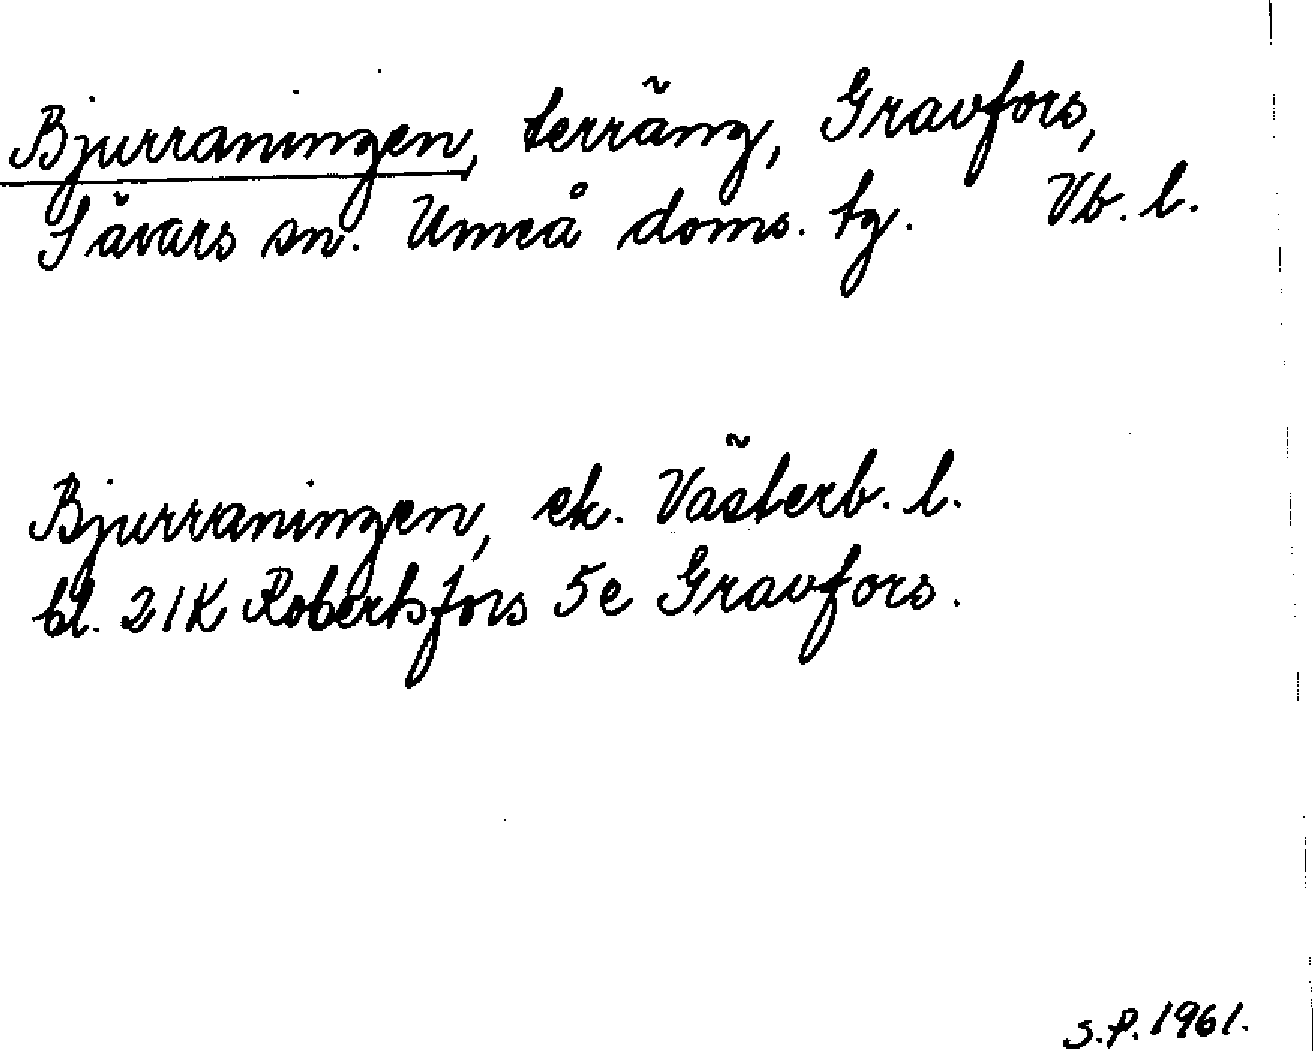 Bjurraningen, terräng, Gravfors,
Sävars sn. Umeå doms. tg. Vb. l.
Bjurraningen, ek. Västerb. l.
bl. 21K Robertsfors 5e Gravfors.
S.P. 1961.